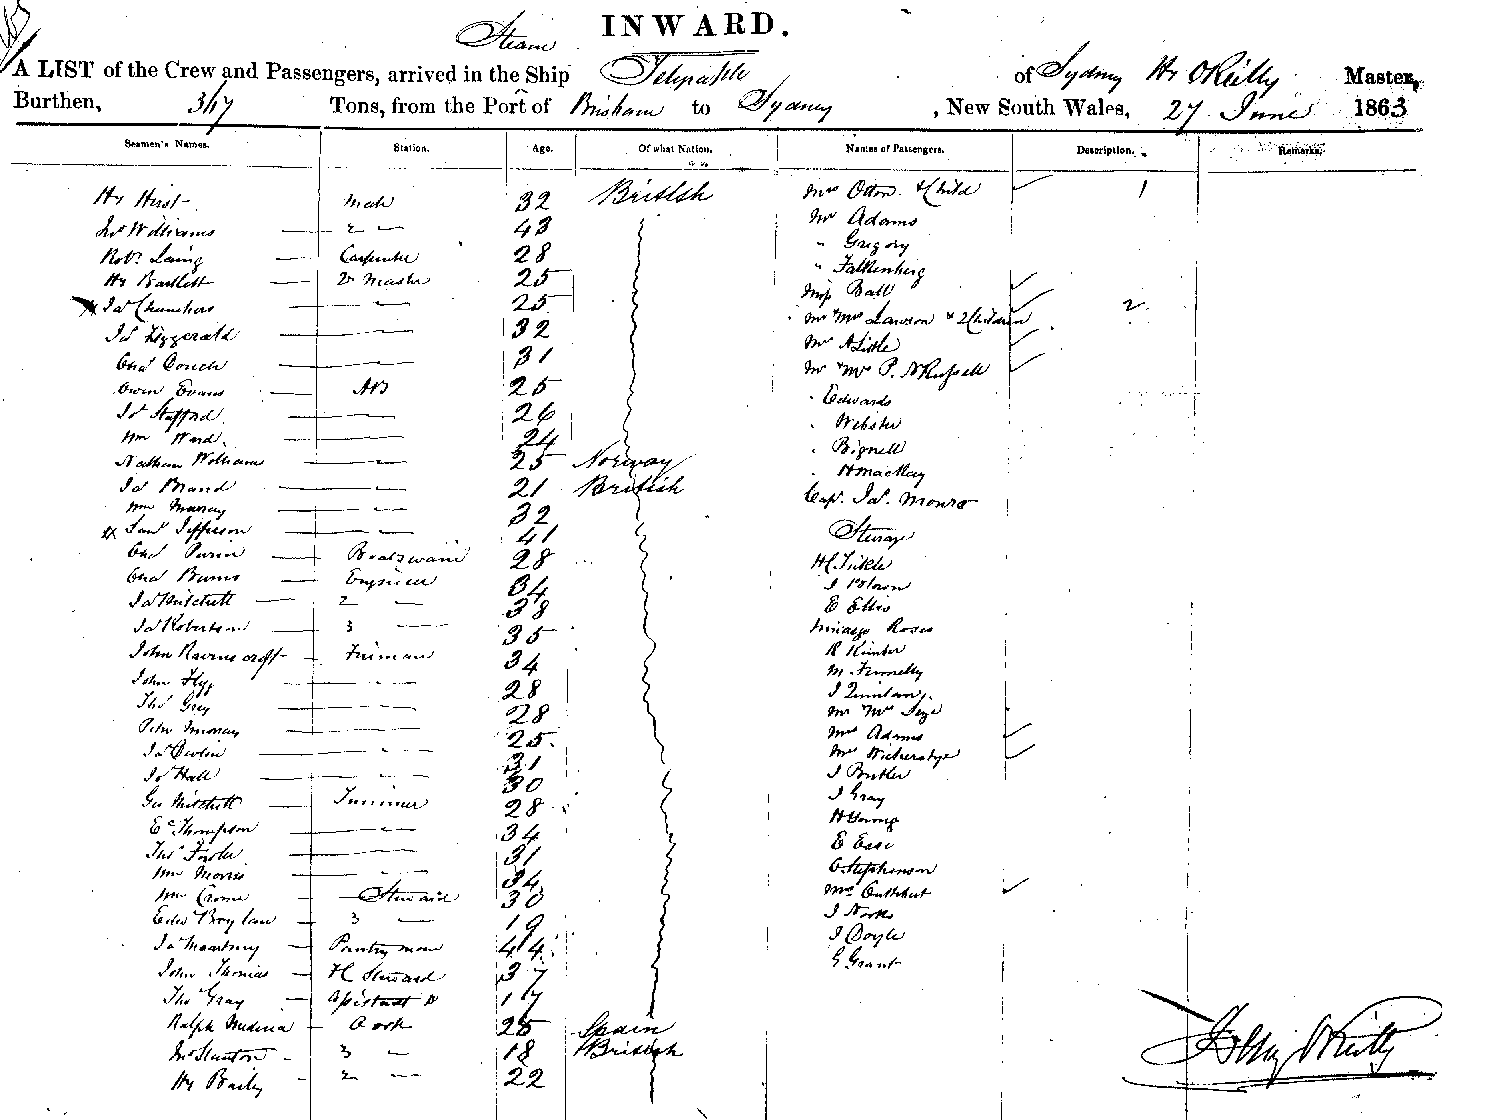 INWARD.
Steam
A LIST of the Crew and Passengers, arrived in the Ship of Sydney Hy OReilly Master,
Burthen, 317 Tons, from the Port of Brisbane to Sydney, New South Wales, 27 June 1863
Seamen's Names. Station. Age. Of what Nation. Names of Passengers. Description. Remarks.
Hy Hirst Mate 32 British Mrs Otton & Child 1
Jno Williams 2 " 43 Mr Adams
Robt Laing Carpenter 28 " Gregory
Hy Bartlett Qr Master 25 " Falkenberg
Jas Chambers " 25 Miss Ball
Jas Fitzgerald " 32 Mr & Mrs Lawson & 2 Children 2
Chas Couch " 31 Mr A Little
Owen Evans AB 25 Mr & Mrs P. N Russell
Jas Stafford " 26 " Edwards
Wm Ward " 24 " Webster
Nathan William " 25 Norway " Bignell
Jas Brand " 21 British " H Mackay
Wm Murray " 32 Capt. Jas. Monro
Saml Jefferson " 41 Steerage
Chas Boatswain 28 H C Tickle
Chas Burns Engineer 34 J Brown
Jas Mitchell 2 " 38 E Ellis
Jas Robertson 3 " 35 Rosco
John Ravenscroft Fireman 34 R Hunter
John " 28 M Finnelly
Thos Grey " 28 J Quinlan
Peter Murray " 25 Mr & Mrs
Jas Devlin " 31 Mrs Adams
Jas Hall " 30 Mrs
Geo Mitchell Trimmer 28 J Butler
Ed Thompson " 34 J Gray
Thos Fowler " 31 H Young
Wm Morris " 34 E Esse
Wm Crome Steward 30 C Stephenson
Edwd Boylan 3 " 19 Mrs Cuthbert
Jas Macartney Pantryman 44 J North
John Thomas F C Steward 37 J Doyle
Thos Gray Assistant 17 G Grant
Ralph Medina Cook 25 Spain
Jno Stanton 3 " 18 British
Hy Bailey 2 " 22
Henry O'Reilly